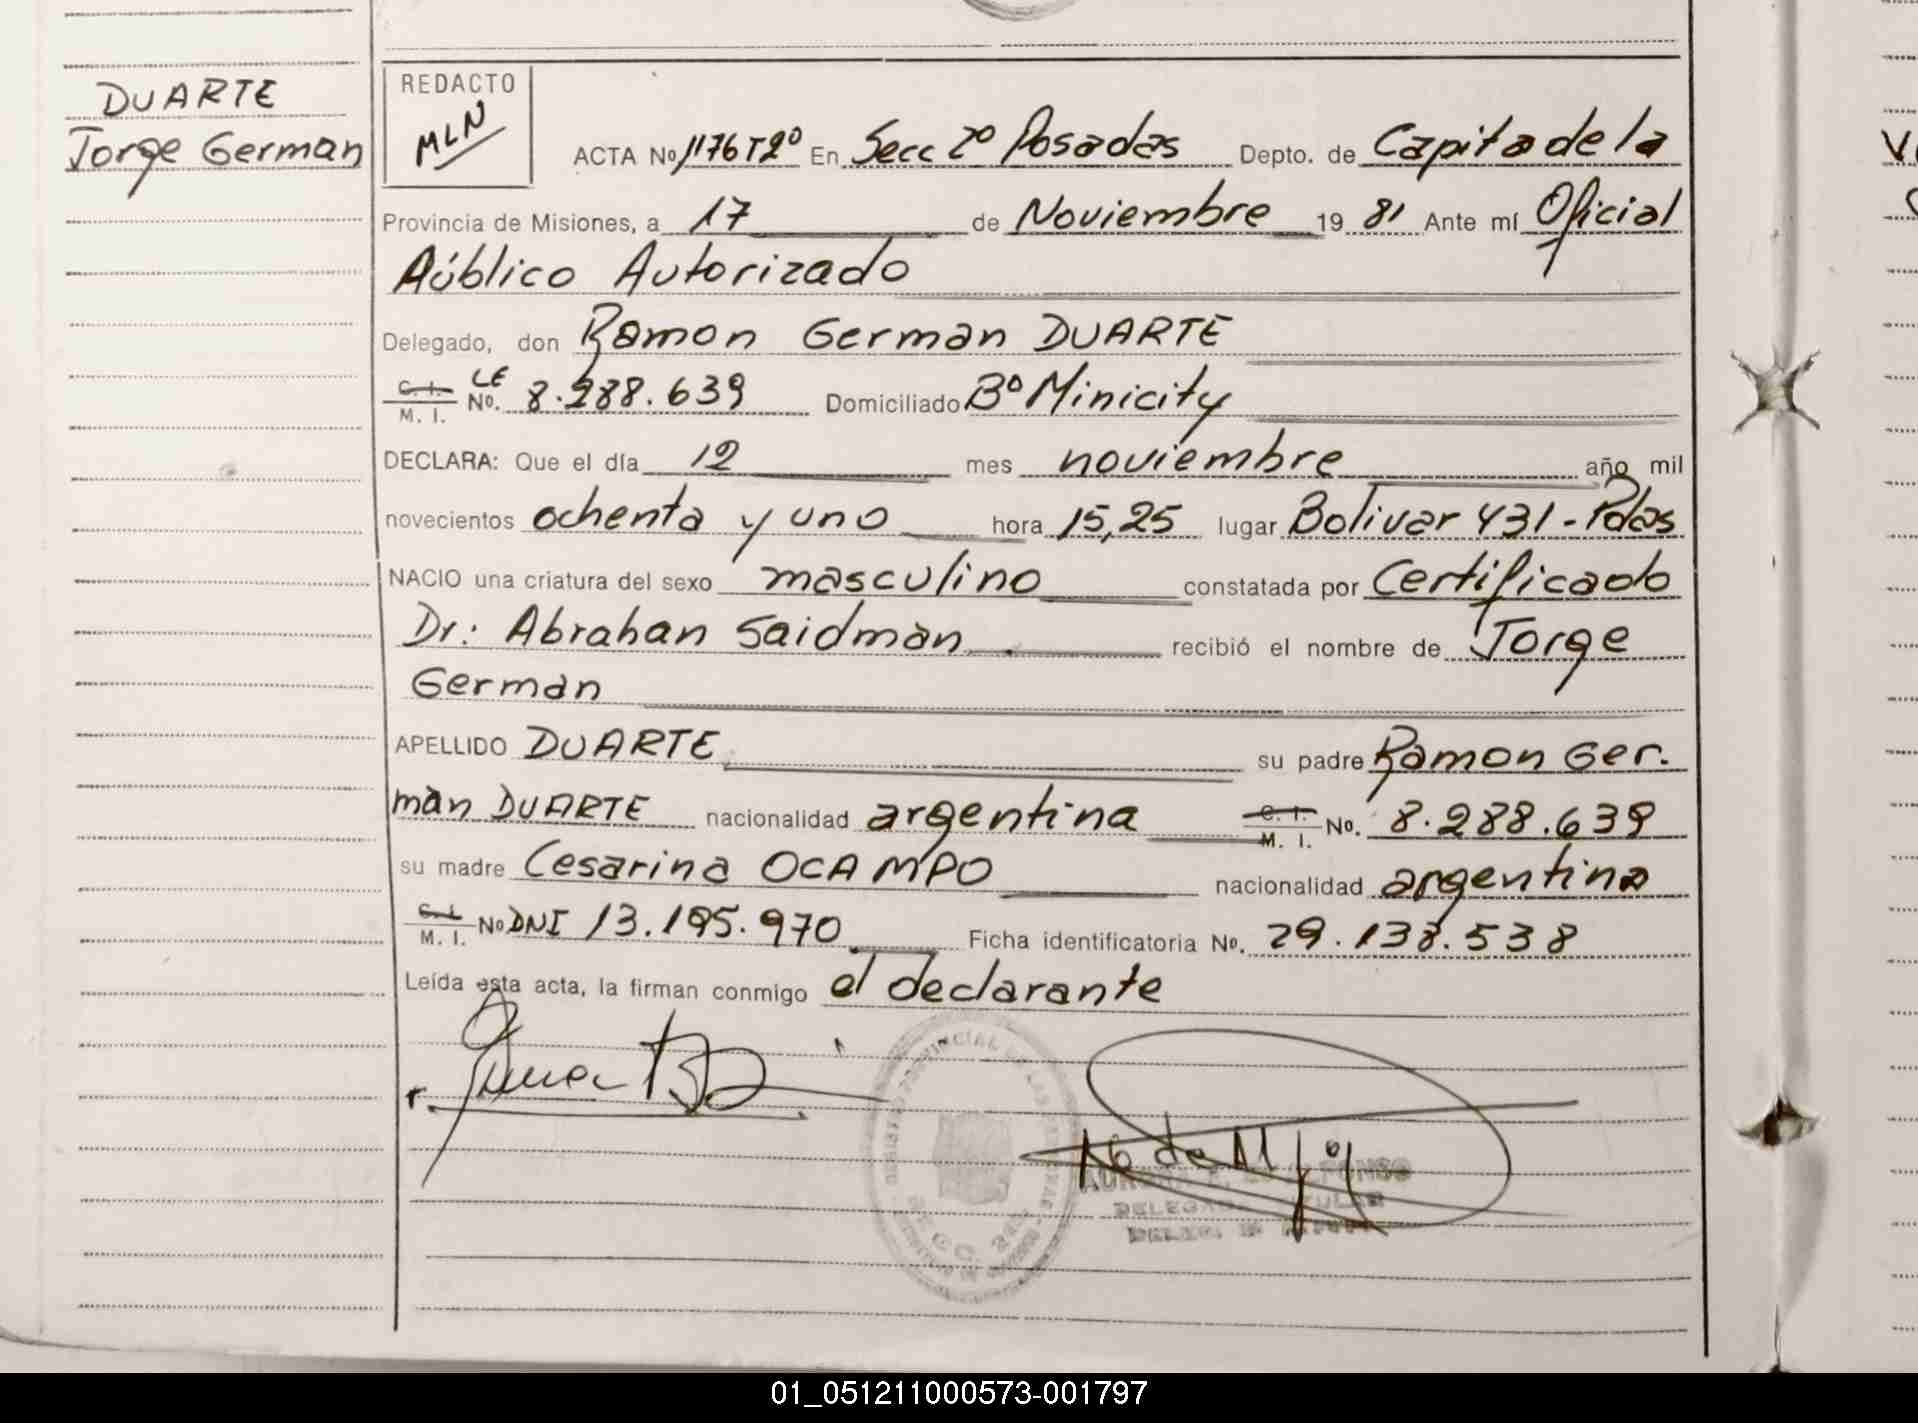 DUARTE
Jorge German
REDACTO
MLN
ACTA No 1176 T2º En Secc 2º Posadas Depto. de Capita de la
Provincia de Misiones, a 17 de Noviembre 19 81 Ante mí Oficial
Público Autorizado
Delegado, don Ramon German DUARTE
C. I. LE
M. I. No. 8.288.639 Domiciliado Bº Minicity
DECLARA: Que el día 12 mes noviembre año mil
novecientos ochenta y uno hora 15,25 lugar Bolivar 431 - Pdas
NACIO una criatura del sexo masculino constatada por Certificado
Dr: Abrahan Saidman recibió el nombre de Jorge
German
APELLIDO DUARTE su padre Ramon Ger.
man DUARTE nacionalidad argentina C. I. M. I. No. 8.288.639
su madre Cesarina OCAMPO nacionalidad argentina
C. I. M. I. No DNI 13.195.970 Ficha identificatoria No. 29.138.538
Leída esta acta, la firman conmigo el declarante
01_051211000573-001797